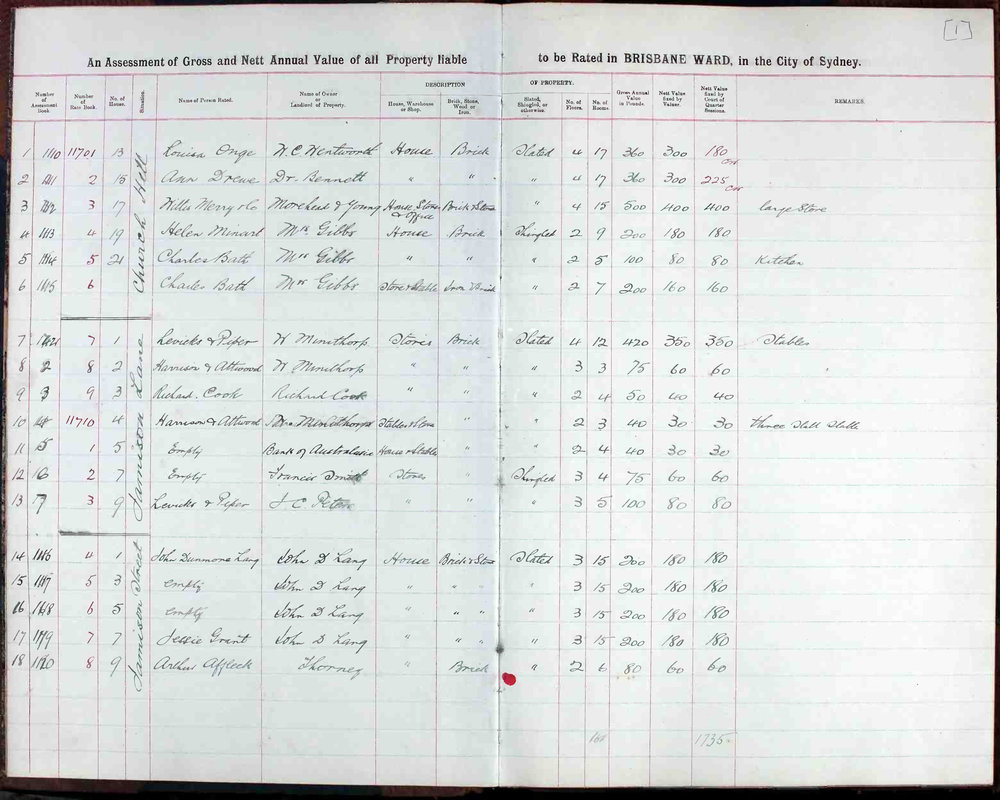 [1]
An Assessment of Gross and Nett Annual Value of all Property liable to be Rated in BRISBANE WARD, in the City of Sydney.
DESCRIPTION OF PROPERTY.
Number of Assessment Book. Number of Rate Book. No. of House. Situation. Name of Person Rated. Name of Owner or Landlord of Property. House, Warehouse or Shop. Brick, Stone, Wood or Iron. Slated, Shingled, or otherwise. No. of Floors. No. of Rooms. Gross Annual Value in Pounds. Nett Value fixed by Valuer. Nett Value fixed by Court of Quarter Sessions. REMARKS.
Church Hill
1 11701 13 Louisa Onge W. C. Wentworth House Brick Slated 4 17 360 300 180
2 2 15 Ann Drewe Dr. Bennett " " " 4 17 360 300 225
3 3 17 Willis Merry & Co Morehead & Young House Stores & Office Brick & Stone " 4 15 500 400 400 large Store
4 4 19 Helen Minart Mrs Gibbs House Brick Shingled 2 9 200 180 180
5 5 21 Charles Bath Mrs Gibbs " " " 2 5 100 80 80 Kitchen
6 6 Charles Bath Mrs Gibbs Store & Stable Iron & Brick " 2 7 200 160 160
Jamison Lane
7 7 1 Levicks & Piper W Minithorp Stores Brick Slated 4 12 420 350 350 Stables
8 2 8 2 Harrison & Attwood W Minithorp " " " 3 3 75 60 60
9 3 9 3 Richard Cook Richard Cook " " 2 4 50 40 40
10 11710 4 Harrison & Attwood Minithorp Stables & Store " " 2 3 40 30 30 three Stall Stable
11 5 1 5 Empty Bank of Australasia House & Stable " " 2 4 40 30 30
12 6 2 7 Empty Francis Smith Stores " Shingled 3 4 75 60 60
13 7 3 9 Levicks & Piper J. C. Peton " " " 3 5 100 80 80
Jamison Street
14 4 1 John Dunmore Lang John D Lang House Brick & Stone Slated 3 15 200 180 180
15 5 3 Empty John D Lang " " " " 3 15 200 180 180
16 6 5 Empty John D Lang " " " " 3 15 200 180 180
17 7 7 Jessie Grant John D Lang " " " " 3 15 200 180 180
18 8 9 Arthur Affleck Thorney " Brick " 2 6 80 60 60
1735